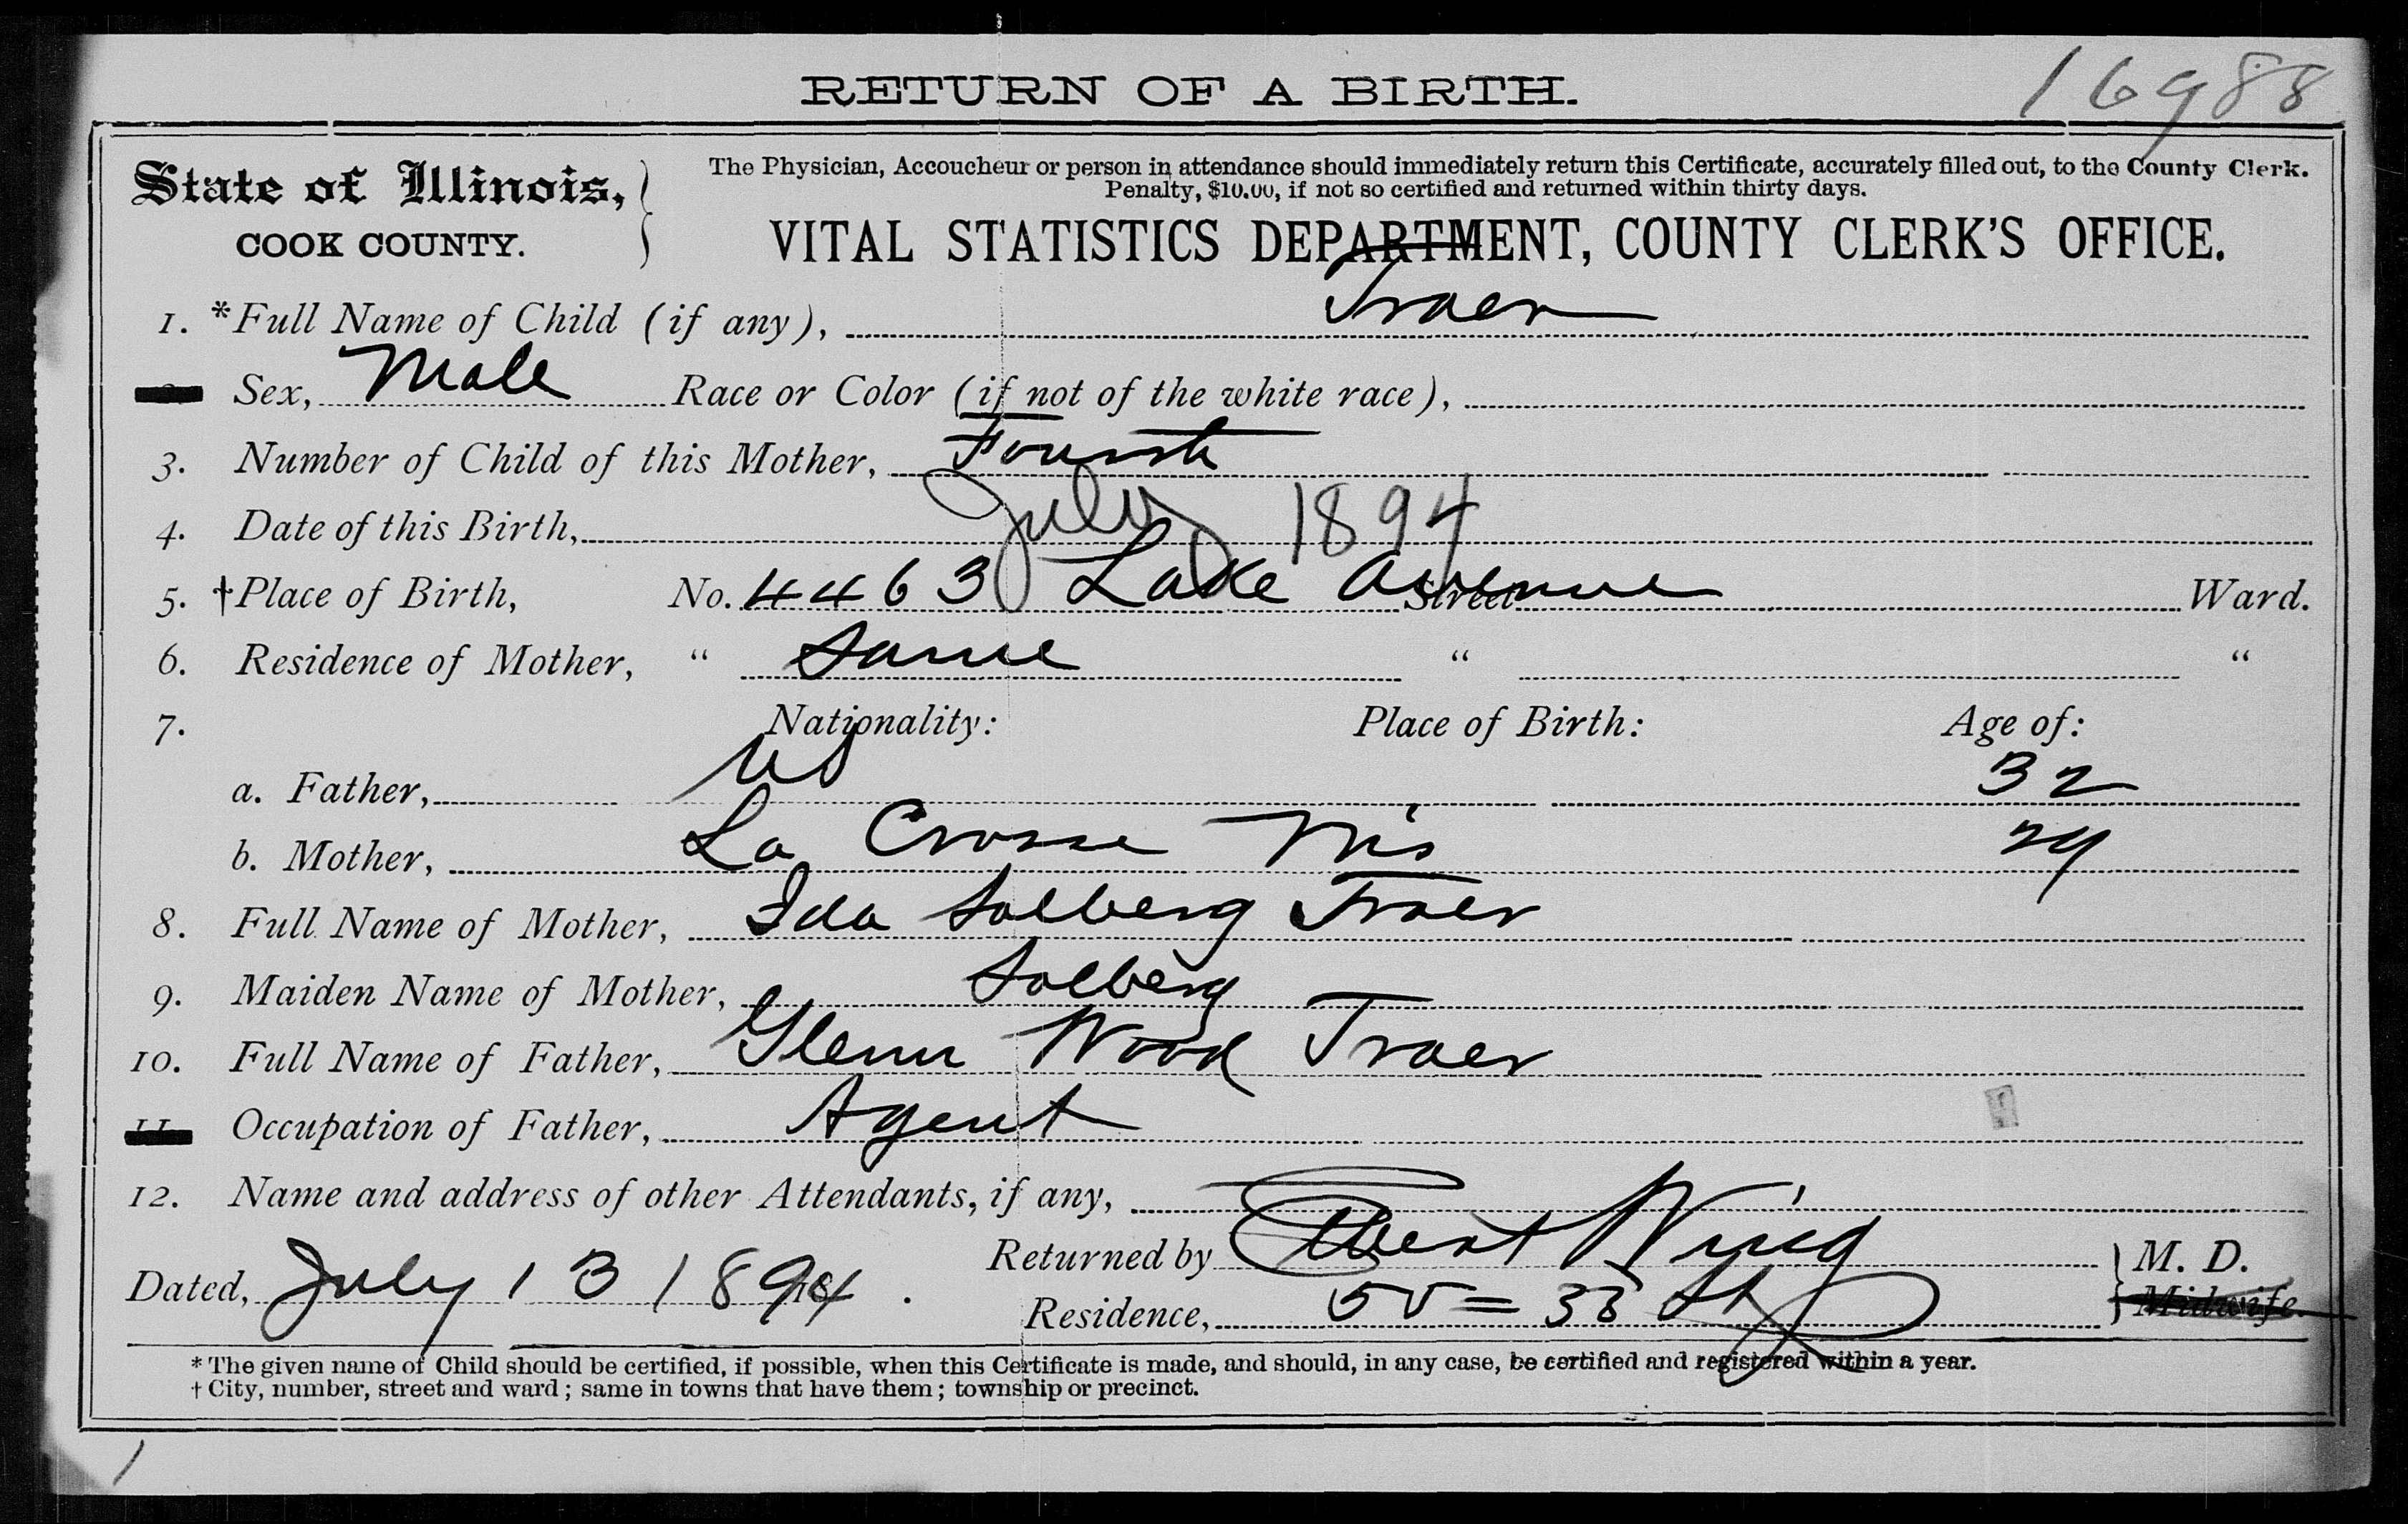 RETURN OF A BIRTH. 16988
State of Illinois,
COOK COUNTY.
The Physician, Accoucheur or person in attendance should immediately return this Certificate, accurately filled out, to the County Clerk.
Penalty, $10.00, if not so certified and returned within thirty days.
VITAL STATISTICS DEPARTMENT, COUNTY CLERK'S OFFICE.
1. *Full Name of Child (if any), Traer
Sex, Male Race or Color (if not of the white race),
3. Number of Child of this Mother, Fourth
4. Date of this Birth, July 1894
5. †Place of Birth, No. 4463 Lake Avenue Street Ward.
6. Residence of Mother, " Same " "
7. Nationality: Place of Birth: Age of:
a. Father, US 32
b. Mother, La Crosse Wis 29
8. Full Name of Mother, Ida Solberg Traer
9. Maiden Name of Mother, Solberg
10. Full Name of Father, Glenn Wood Traer
11. Occupation of Father, Agent
12. Name and address of other Attendants, if any,
Returned by Elbert Wing M. D.
Dated, July 13 1894. Residence, 55 = 33 St Midwife.
* The given name of Child should be certified, if possible, when this Certificate is made, and should, in any case, be certified and registered within a year.
† City, number, street and ward; same in towns that have them; township or precinct.